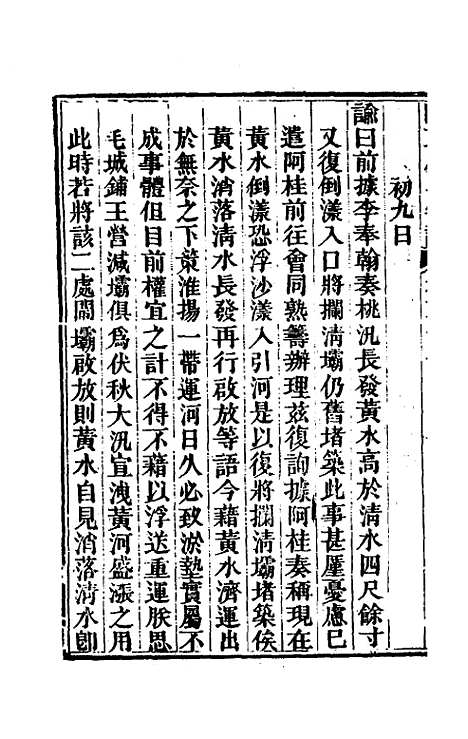 初九日
諭曰前據李奉翰奏桃汛長發黃水高於清水四尺餘寸
又復倒漾入口將攔清壩仍舊堵築此事甚厪憂慮已
遣阿桂前往會同熟籌辦理茲復詢據阿桂奏稱現在
黃水倒漾恐浮沙漾入引河是以復將攔清壩堵築俟
黃水消落清水長發再行啟放等語今藉黃水濟運出
於無奈之下策淮揚一帶運河日久必致淤墊實屬不
成事體但目前權宜之計不得不藉以浮送重運朕思
毛城鋪王營減壩俱為伏秋大汛宜洩黃河盛漲之用
此時若將該二處閘壩啟放則黃水自見消落清水卽